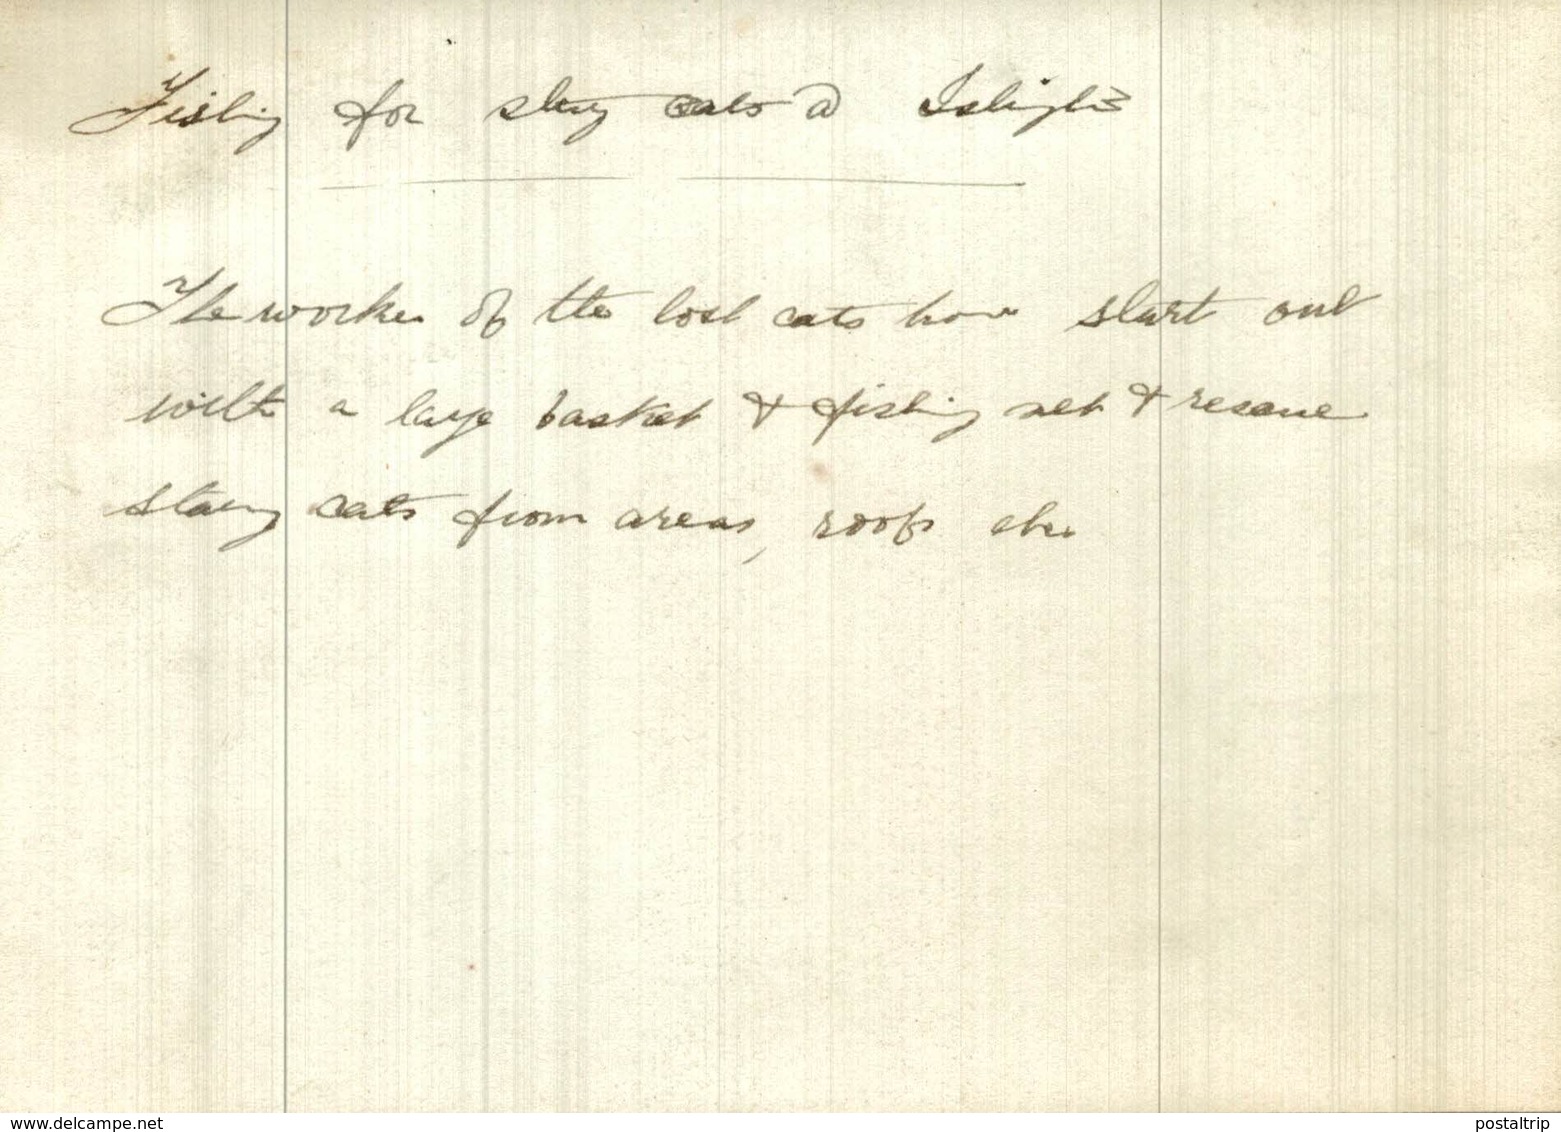 Fishing for stray cats @ Islington
The worker of the lost cats home start out
with a large basket & fishing net & rescue
stray cats from areas, roofs etc
www.delcampe.net
postaltrip